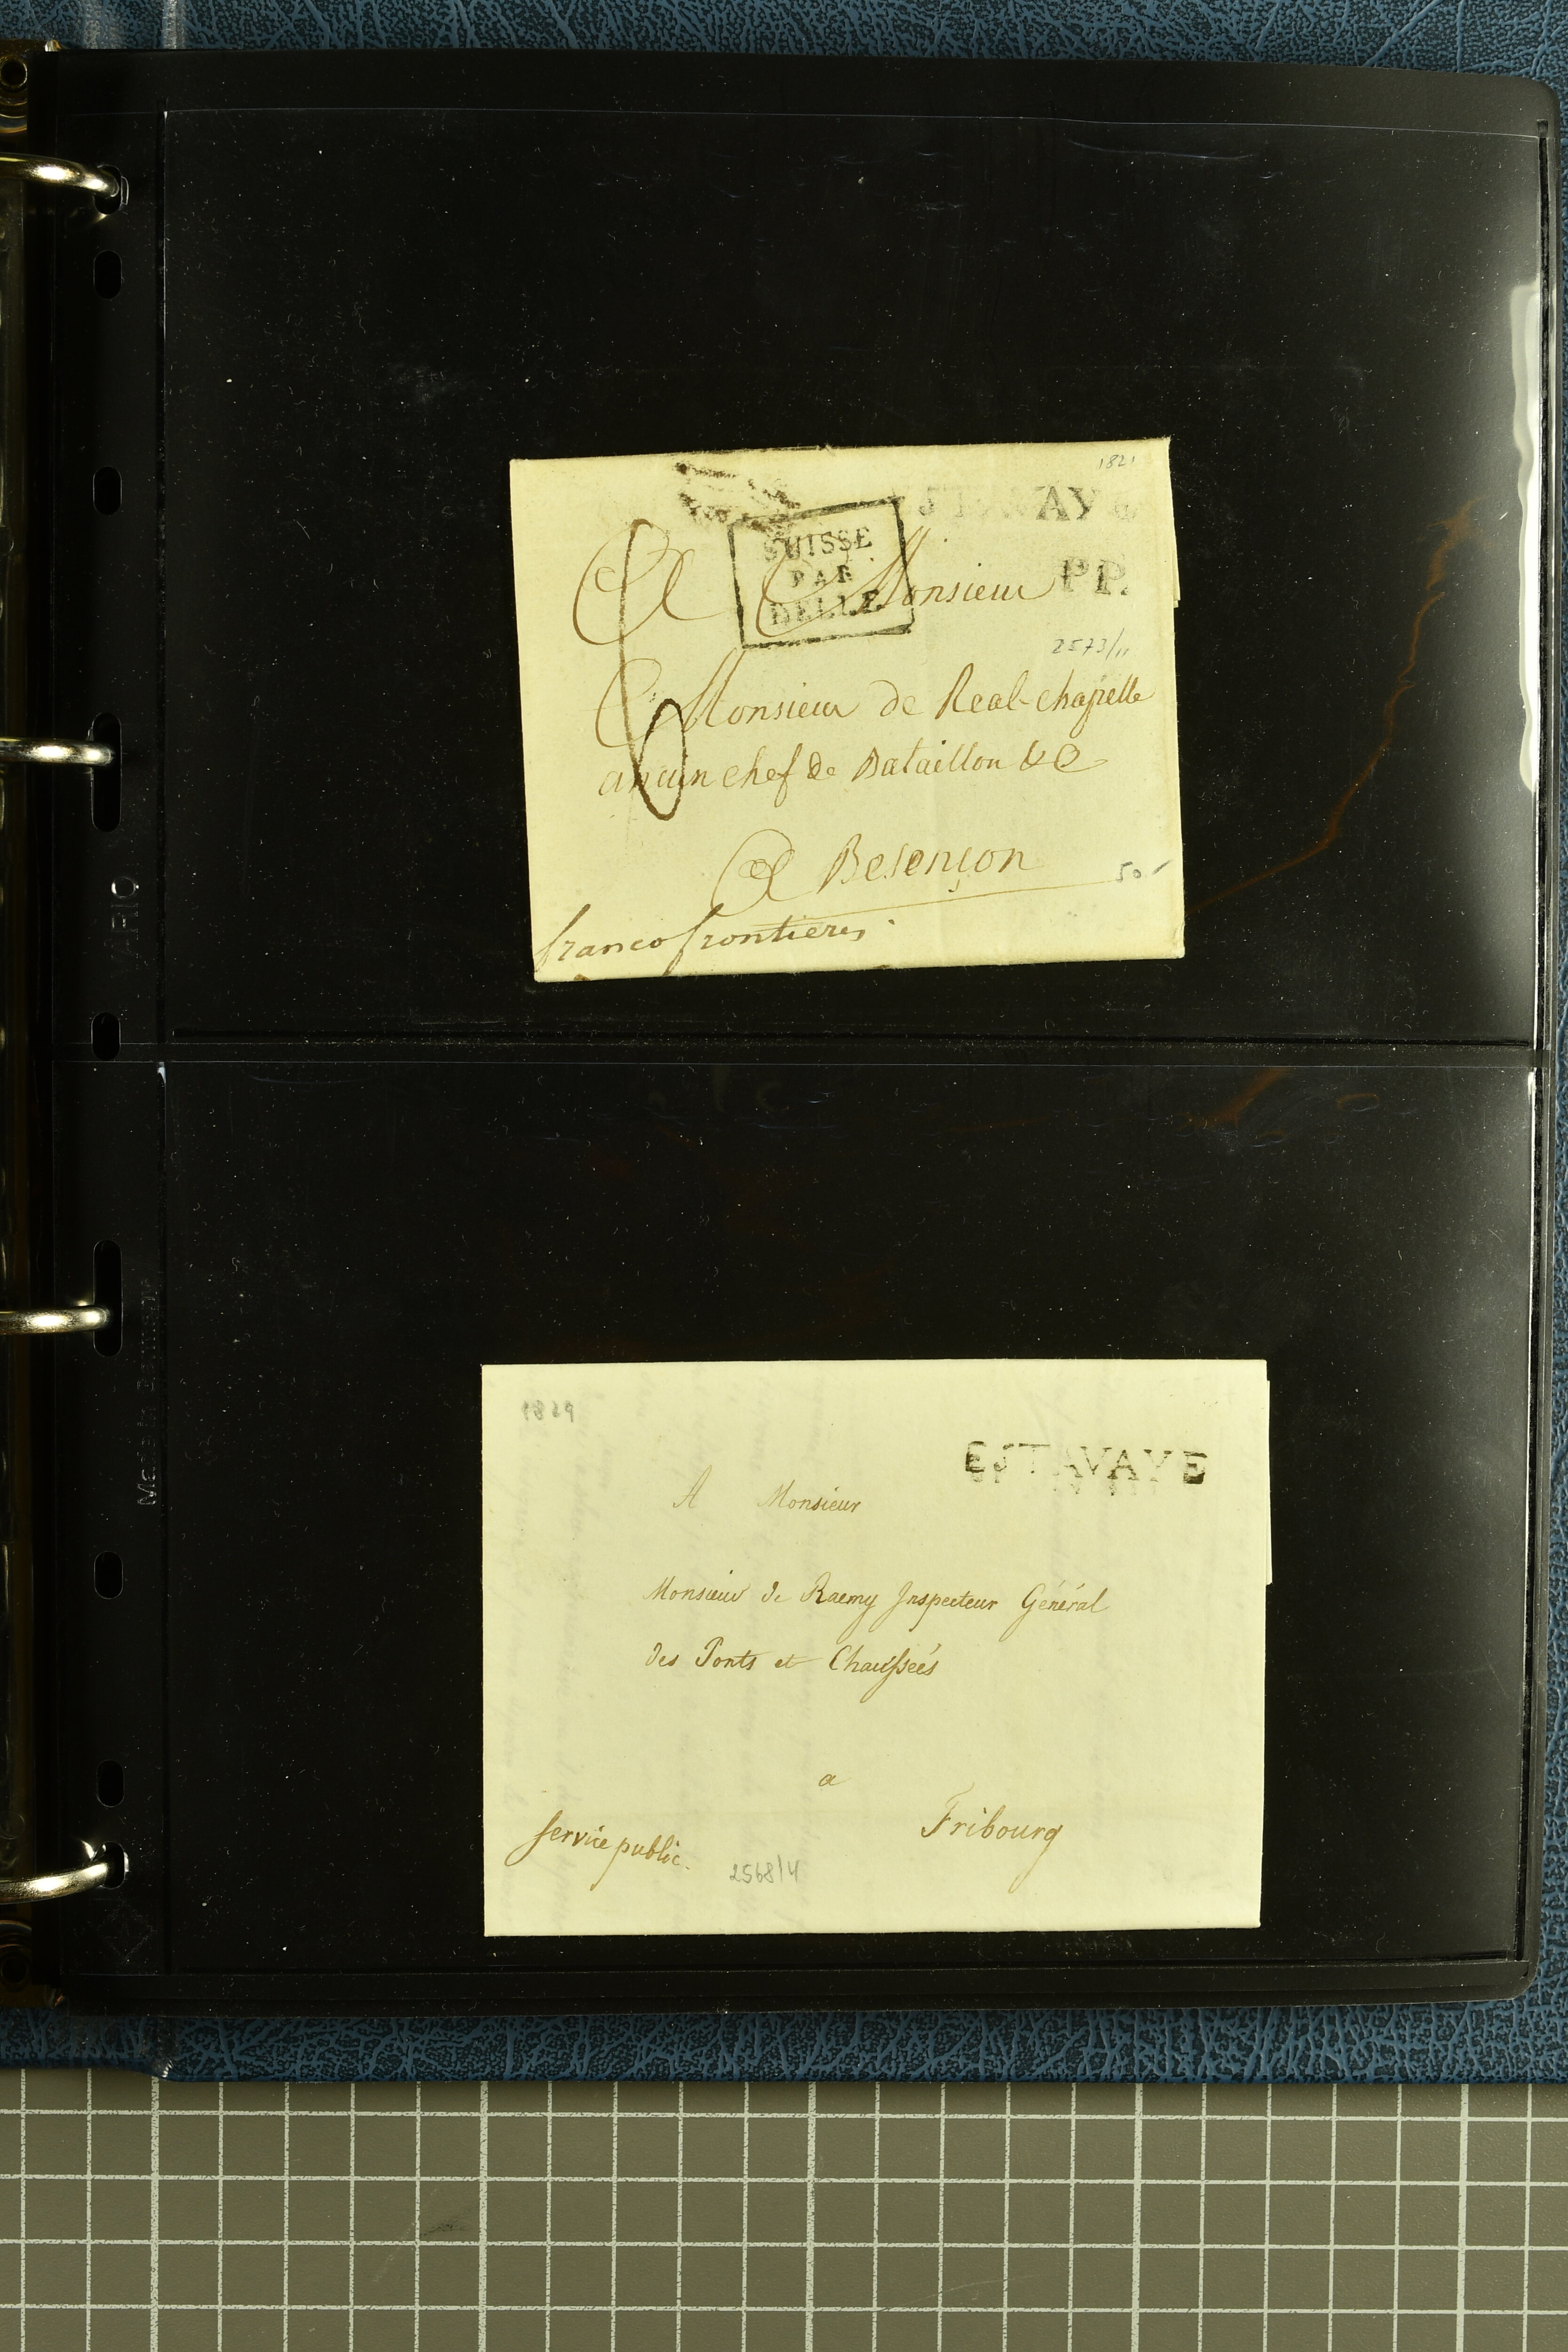 1821
SUISSE
PAR
DELLE
P.P.
A Monsieur
2573/11
Monsieur de Real-chapelle
ancien chef de Bataillon &c
A Besençon
50
franco frontieres
1829
ESTAVAYE
A Monsieur
Monsieur de Raemy Inspecteur Général
des Ponts et Chaussées
a
Fribourg
service public.
2568/4
VARIO